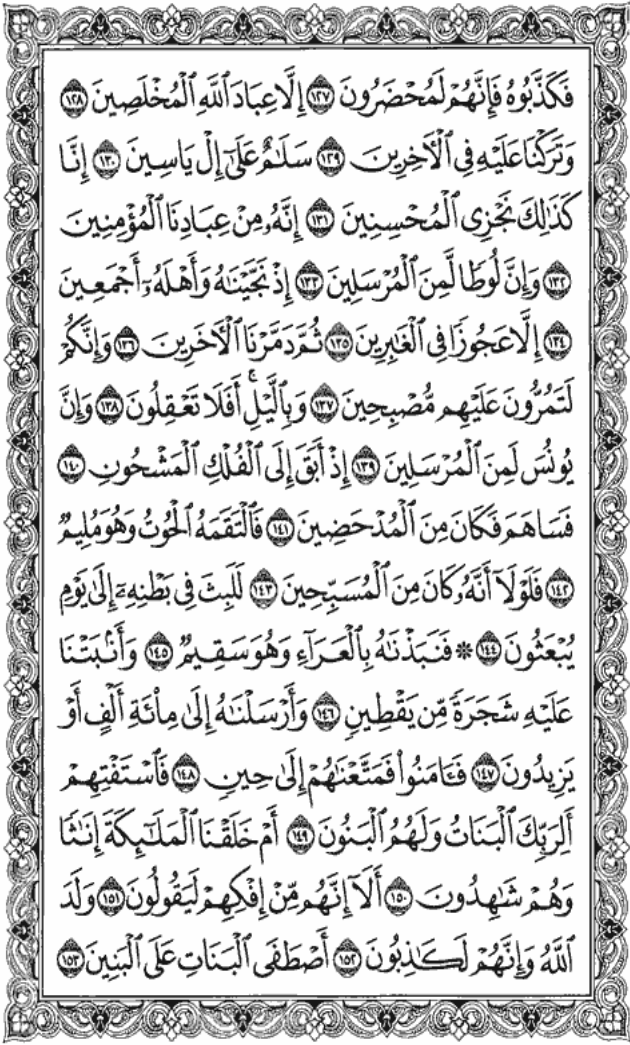 فَكَذَّبُوهُ فَإِنَّهُمْ لَمُحْضَرُونَ ١٢٧ إِلَّا عِبَادَ ٱللَّهِ ٱلْمُخْلَصِينَ ١٢٨
وَتَرَكْنَا عَلَيْهِ فِى ٱلْأَخِرِينَ ١٢٩ سَلَٰمٌ عَلَىٰٓ إِلْ يَاسِينَ ١٣٠ إِنَّا
كَذَٰلِكَ نَجْزِى ٱلْمُحْسِنِينَ ١٣١ إِنَّهُۥ مِنْ عِبَادِنَا ٱلْمُؤْمِنِينَ
١٣٢ وَإِنَّ لُوطًا لَّمِنَ ٱلْمُرْسَلِينَ ١٣٣ إِذْ نَجَّيْنَٰهُ وَأَهْلَهُۥٓ أَجْمَعِينَ
١٣٤ إِلَّا عَجُوزًا فِى ٱلْغَٰبِرِينَ ١٣٥ ثُمَّ دَمَّرْنَا ٱلْأَخَرِينَ ١٣٦ وَإِنَّكُمْ
لَتَمُرُّونَ عَلَيْهِم مُّصْبِحِينَ ١٣٧ وَبِٱلَّيْلِ ۚ أَفَلَا تَعْقِلُونَ ١٣٨ وَإِنَّ
يُونُسَ لَمِنَ ٱلْمُرْسَلِينَ ١٣٩ إِذْ أَبَقَ إِلَى ٱلْفُلْكِ ٱلْمَشْحُونِ ١٤٠
فَسَاهَمَ فَكَانَ مِنَ ٱلْمُدْحَضِينَ ١٤١ فَٱلْتَقَمَهُ ٱلْحُوتُ وَهُوَ مُلِيمٌ
١٤٢ فَلَوْلَآ أَنَّهُۥ كَانَ مِنَ ٱلْمُسَبِّحِينَ ١٤٣ لَلَبِثَ فِى بَطْنِهِۦٓ إِلَىٰ يَوْمِ
يُبْعَثُونَ ١٤٤ ۞ فَنَبَذْنَٰهُ بِٱلْعَرَآءِ وَهُوَ سَقِيمٌ ١٤٥ وَأَنۢبَتْنَا
عَلَيْهِ شَجَرَةً مِّن يَقْطِينٍ ١٤٦ وَأَرْسَلْنَٰهُ إِلَىٰ مِا۟ئَةِ أَلْفٍ أَوْ
يَزِيدُونَ ١٤٧ فَـَٔامَنُوا۟ فَمَتَّعْنَٰهُمْ إِلَىٰ حِينٍ ١٤٨ فَٱسْتَفْتِهِمْ
أَلِرَبِّكَ ٱلْبَنَاتُ وَلَهُمُ ٱلْبَنُونَ ١٤٩ أَمْ خَلَقْنَا ٱلْمَلَٰٓئِكَةَ إِنَٰثًا
وَهُمْ شَٰهِدُونَ ١٥٠ أَلَآ إِنَّهُم مِّنْ إِفْكِهِمْ لَيَقُولُونَ ١٥١ وَلَدَ
ٱللَّهُ وَإِنَّهُمْ لَكَٰذِبُونَ ١٥٢ أَصْطَفَى ٱلْبَنَاتِ عَلَى ٱلْبَنِينَ ١٥٣